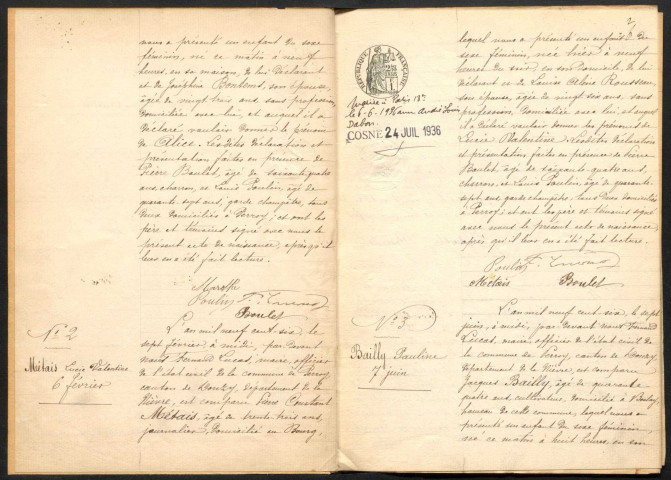 nous a présenté un enfant du sexe
féminin, né ce matin à neuf
heures, en sa maison, de lui déclarant
et de Joséphine Bontemps, son épouse,
âgée de vingt trois ans, sans profession,
domiciliée avec lui, et auquel il a
déclaré vouloir donner le prénom
de Alice. Lesdites déclaration et
présentation faites en présence de
Pierre Boulet, âgé de soixante quatre
ans, charron, et Louis Poulin, âgé de
quarante sept ans, garde champêtre, tous
deux domiciliés à Perroy; et ont les
père et témoins signé avec nous le
présent acte de naissance, après qu'il
leur en a été fait lecture.
Marotte
Poulin F. Lucas
Boulet
N° 2
Métais Lucie Valentine
6 février
L'an mil neuf cent six, le
sept février à midi, par devant
nous Fernand Lucas, maire, officier
de l'état civil de la commune de Perroy
canton de Donzy, département de la
Nièvre, est comparu Constant
Métais, âgé de trente trois ans,
journalier, domicilié au Bourg,
2
lequel nous a présenté un enfant du
sexe féminin, née hier à neuf
heures du soir, en son domicile, de lui
déclarant et de Louise Rousseau,
son épouse, âgée de vingt six ans, sans
profession, domiciliée avec lui, et auquel
il a déclaré vouloir donner les prénoms de
Lucie Valentine. Lesdites déclaration
et présentation faites en présence de Pierre
Boulet, âgé de soixante quatre ans,
charron, et Louis Poulin, âgé de quarante
sept ans, garde champêtre, tous deux domiciliés
à Perroy; et ont les père et témoins signé
avec nous le présent acte de naissance
après qu'il leur en a été fait lecture.
Poulin F. Lucas
Métais Boulet
RÉPUBLIQUE FRANÇAISE
Mariée à Paris 18e
le 6-6-1936 avec André Louis
Dabon
COSNE 24 JUIL 1936
N° 3
Bailly Pauline
7 juin
L'an mil neuf cent six, le sept
juin, à midi, par devant nous Fernand
Lucas, maire, officier de l'état civil de
la commune de Perroy, canton de Donzy
département de la Nièvre, est comparu
Jacques Bailly, âgé de quarante
quatre ans, cultivateur, domicilié à
hameau de cette commune, lequel nous a
présenté un enfant du sexe féminin,
né ce matin à huit heures, en son